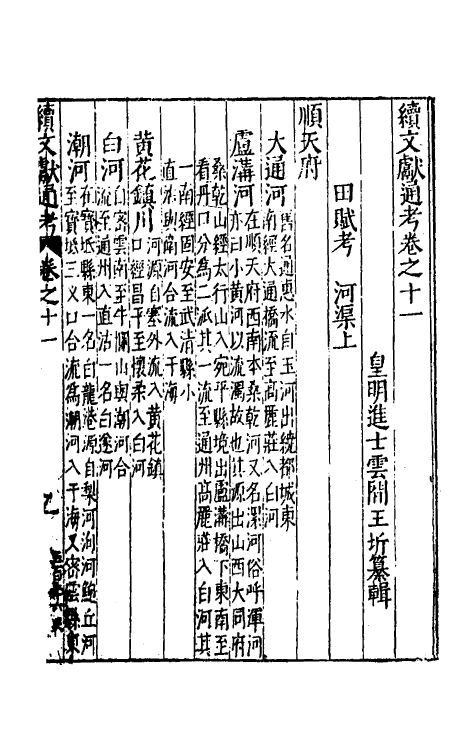 續文獻通考卷之十一
皇明進士雲間王圻纂輯
田賦考 河渠上
順天府
大通河 舊名通惠水自玉河出繞都城東
南經大通橋流至高麗莊入白河
盧溝河 在順天府西南本桑乾河又名漯河俗呼渾河
亦曰小黃河以流濁故也其源出山西大同府
桑乾山經太行山入宛平縣境出盧溝橋下東南至
看丹口分爲二派其一流至通州高麗莊入白河其
一南經固安至武清縣小
直沽與衛河合流入于海
黃花鎮川 河源自塞外流入黃花鎮
口經昌平至懷柔入白河
白河 自密雲南至牛欄山與潮河合
流至通州入直沽一名白遂河
潮河 在寶坻縣東一名白龍港源自梨河泃河鮑丘河
至寶坻三义口合流爲潮河入于海又密雲縣東
續文獻通考 卷之十一